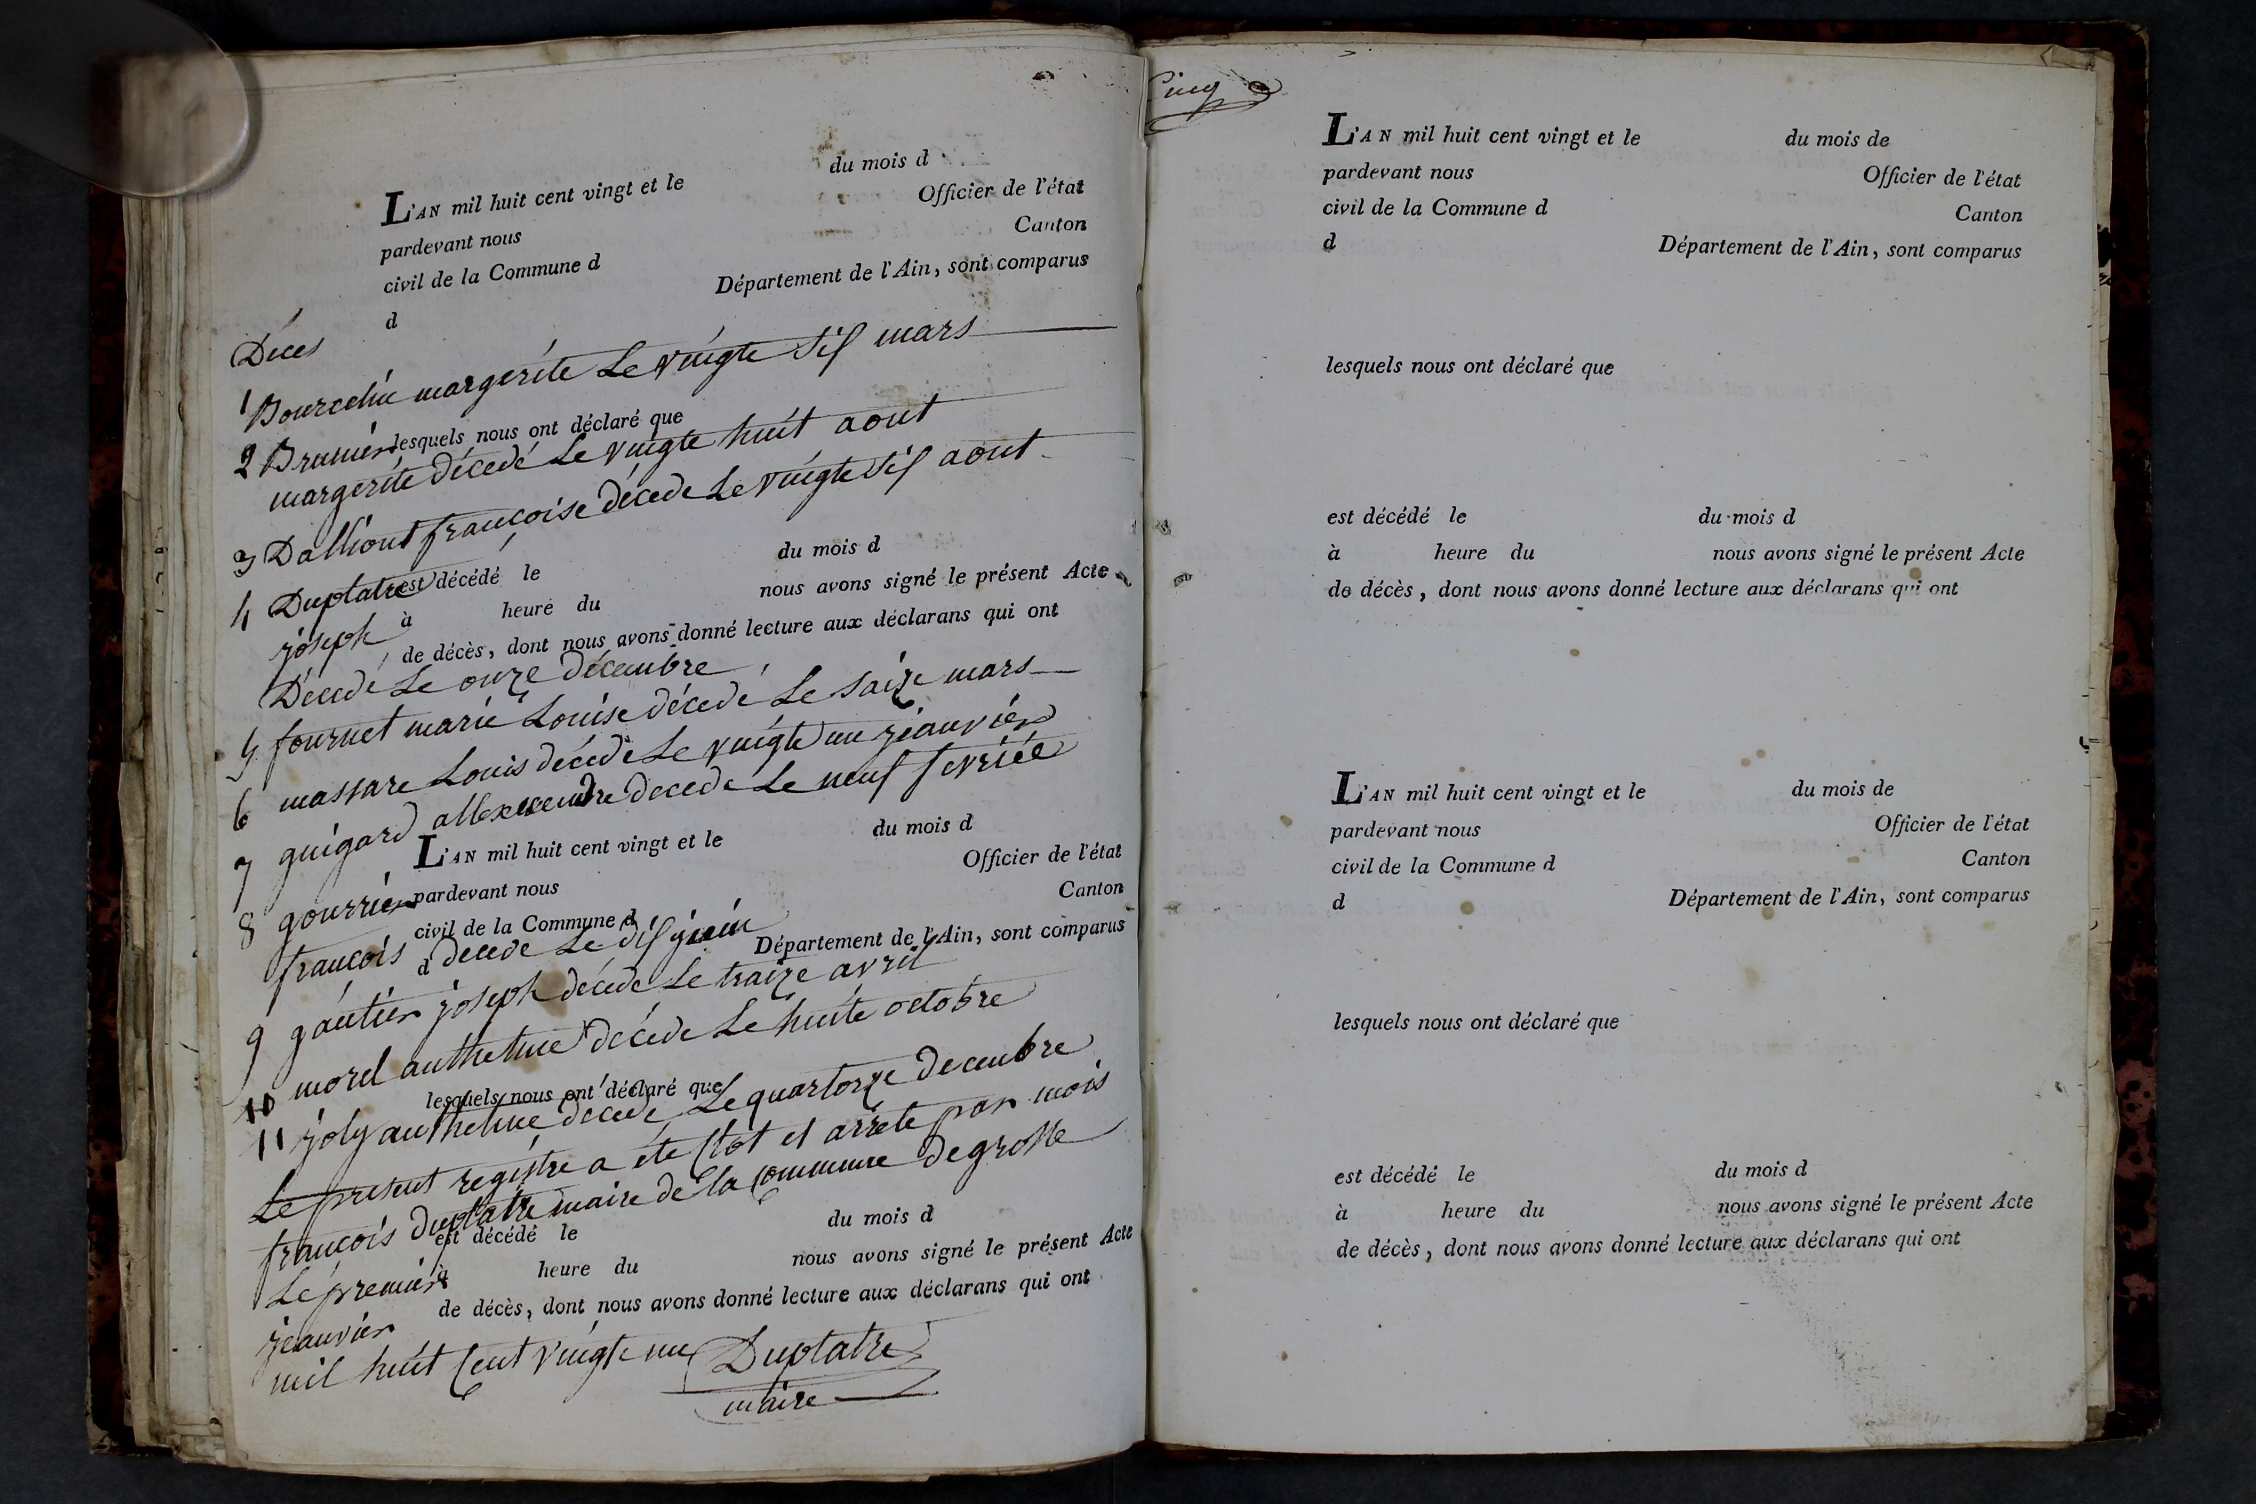 L'AN mil huit cent vingt et le du mois d
pardevant nous Officier de l'état
civil de la Commune d Canton
d Département de l'Ain, sont comparus
Déces
1 Bourcelin margerite Le vingte sis mars
lesquels nous ont déclaré que
2 Brunier
margerite décedé Le vingte huit aout
3 Dalliout françoise décede Le vingte sis aout
est décédé le du mois d
4 Duplatre
à heure du nous avons signé le présent Acte
joseph
de décès, dont nous avons donné lecture aux déclarans qui ont
Décedé Le onze décembre
5 fournet marie Louise décedé Le saize mars
6 massare Louis décedé Le vingte un jeanvier
7 guigard allexcendre decedé Le neuf fevriée
L'AN mil huit cent vingt et le du mois d
pardevant nous Officier de l'état
8 gourrier
civil de la Commune d Canton
d Département de l'Ain, sont comparus
françois decede Le dis juin
9 gautier joseph décede Le traize avril
10 morel anthelme décede Le huite octobre
lesquels nous ont déclaré que
11 joly anthelme decede Le quartorze decembre
Le present registre a éte Clot et arrete par mois
françois duplatre maire de la Commune de grosle
est décédé le du mois d
Le premier
à heure du nous avons signé le présent Acte
de décès, dont nous avons donné lecture aux déclarans qui ont
jeanvier
mil huit Cent vingte un Duplatre
maire
Cinq
L'AN mil huit cent vingt et le du mois de
pardevant nous Officier de l'état
civil de la Commune d Canton
d Département de l'Ain, sont comparus
lesquels nous ont déclaré que
est décédé le du mois d
à heure du nous avons signé le présent Acte
de décès, dont nous avons donné lecture aux déclarans qui ont
L'AN mil huit cent vingt et le du mois de
pardevant nous Officier de l'état
civil de la Commune d Canton
d Département de l'Ain, sont comparus
lesquels nous ont déclaré que
est décédé le du mois d
à heure du nous avons signé le présent Acte
de décès, dont nous avons donné lecture aux déclarans qui ont